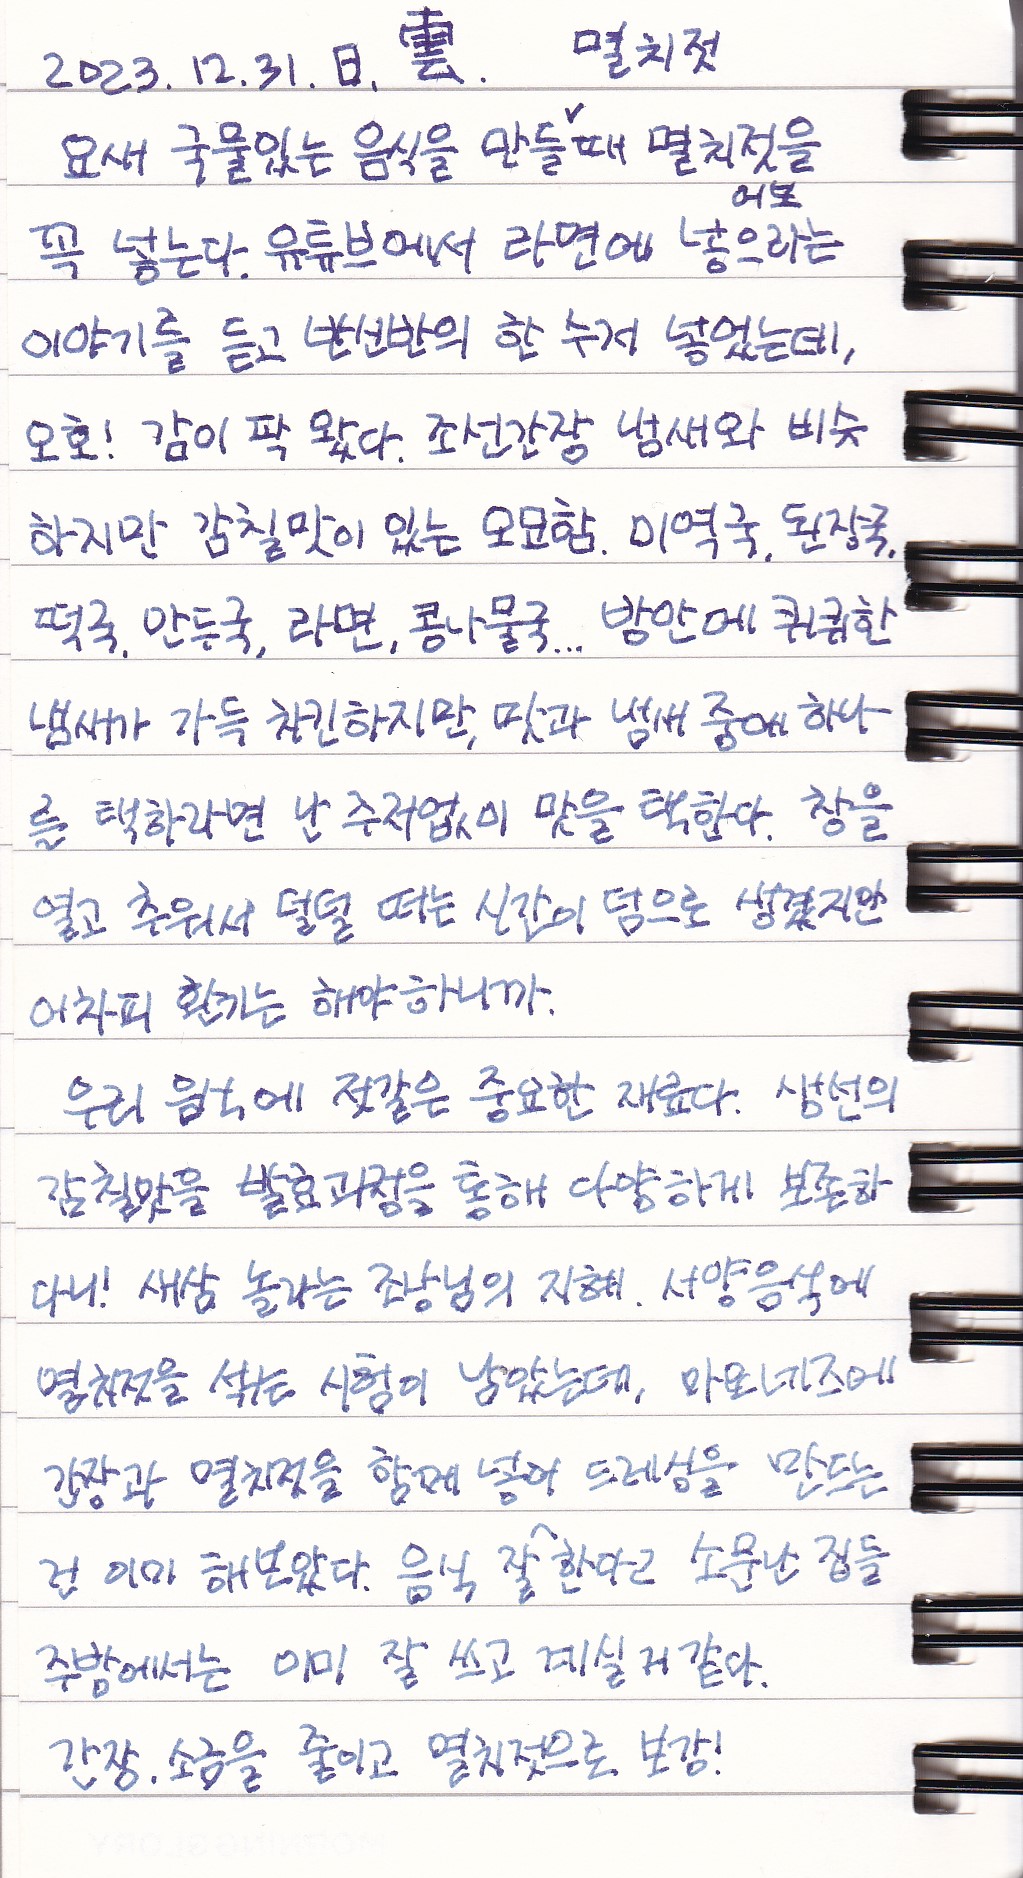 2023. 12. 31. 日. 雲. 멸치젓
요새 국물있는 음식을 만들∨때 멸치젓을
어보
꼭 넣는다. 유튜브에서 라면에 넣으라는
이야기를 듣고 반신반의 한 수저 넣었는데,
오호! 감이 팍 왔다. 조선간장 냄새와 비슷
하지만 감칠맛이 있는 오묘함. 미역국, 된장국,
떡국, 만두국, 라면, 콩나물국... 방안에 퀴퀴한
냄새가 가득 차긴하지만, 맛과 냄새 중에 하나
를 택하라면 난 주저없이 맛을 택한다. 창을
열고 추워서 덜덜 떠는 시간이 덤으로 생겼지만
어차피 환기는 해야하니까.
우리 음식에 젓갈은 중요한 재료다. 생선의
감칠맛을 발효과정을 통해 다양하게 보존하
다니! 새삼 놀라는 조상님의 지혜. 서양음식에
멸치젓을 섞는 시험이 남았는데, 마요네즈에
간장과 멸치젓을 함께 넣어 드레싱을 만드는
건 이미 해보았다. 음식 잘 한다고 소문난 집들
주방에서는 이미 잘 쓰고 계실거같다.
간장, 소금을 줄이고 멸치젓으로 보강!